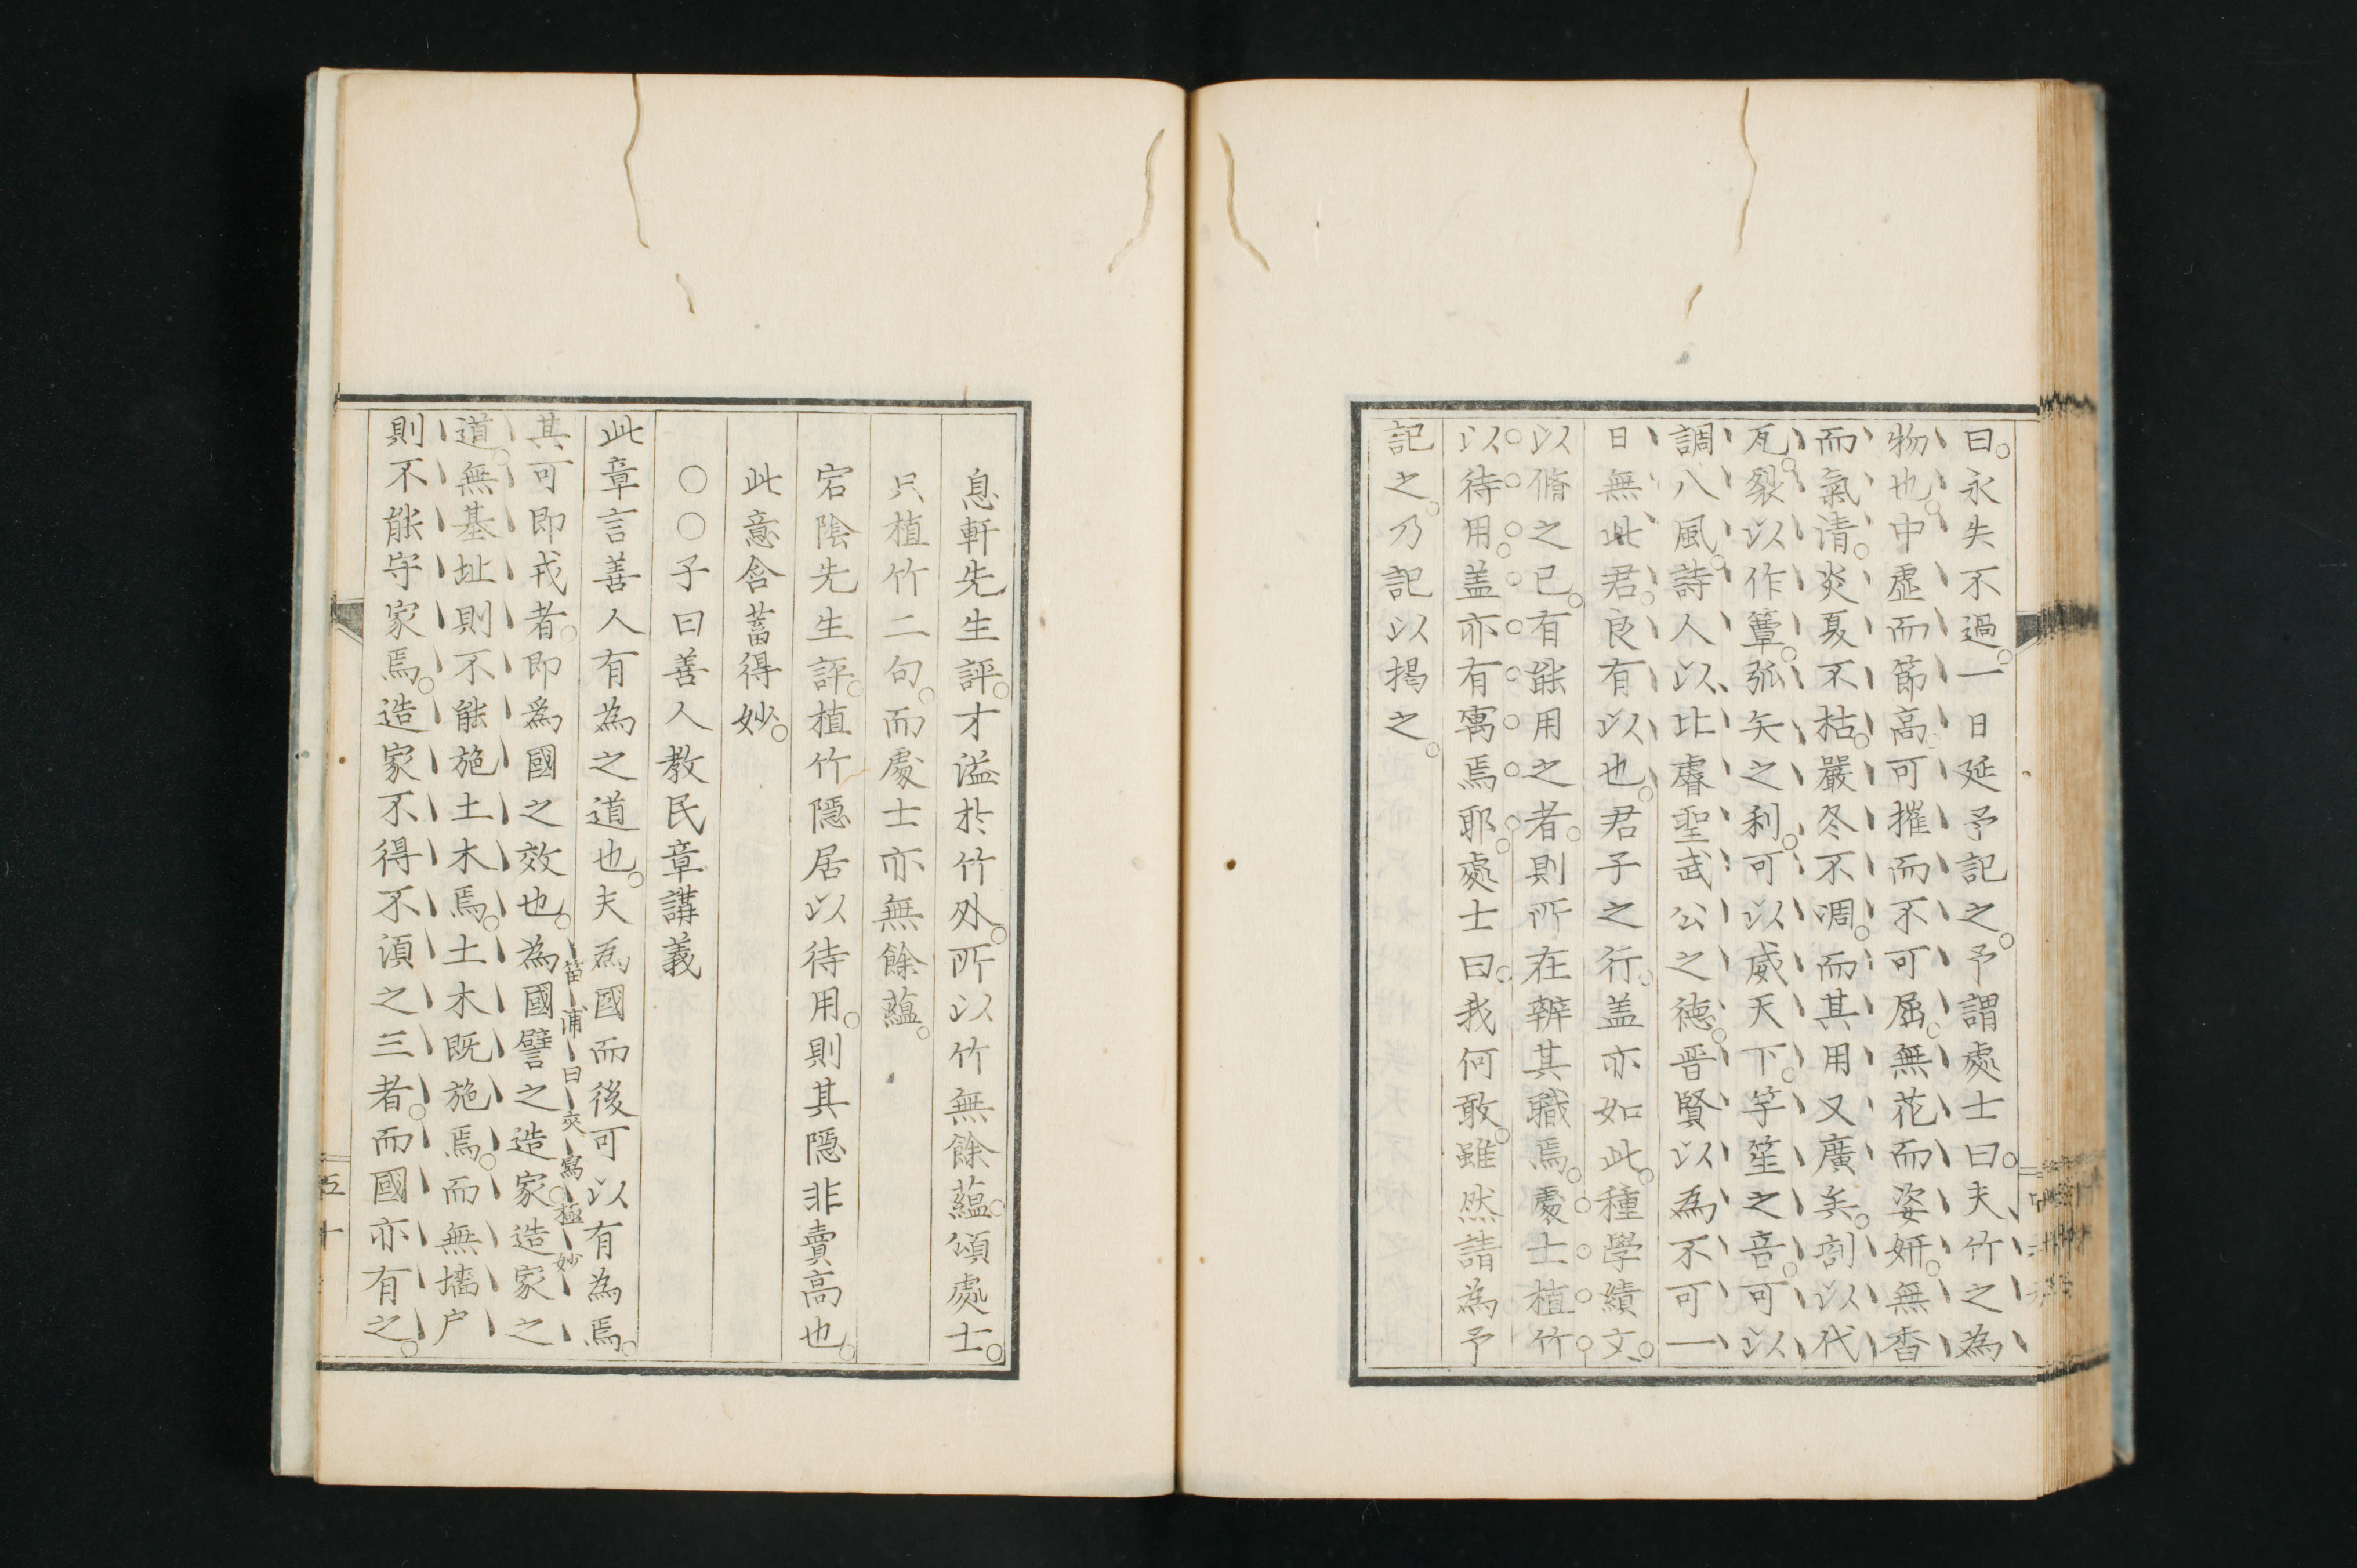 曰。永失不過。一日延予記之。予謂處士曰。夫竹之為
物也。中虛而節高。可摧而不可屈。無花而姿妍。無香
而氣清。炎夏不枯。嚴冬不凋。而其用又廣矣。剖以代
瓦。裂以作簟。弧矢之利。可以威天下。竽笙之音。可以
調八風。詩人以比睿聖武公之徳。晋賢以為不可一
日無此君。良有以也。君子之行。盖亦如此。種學績文。
以脩之已。有能用之者。則所在辨其職焉。處士植竹
以待用。盖亦有寓焉耶。處士曰。我何敢。雖然請為予
記之。乃記以掲之。
息軒先生評。才溢於竹外。所以竹無餘蘊。頌處士。
只植竹二句。而處士亦無餘蘊。
宕陰先生評。植竹隠居以待用。則其隠非賣高也。
此意含蓄得妙。
○○子曰善人教民章講義
此章言善人有為之道也。夫為國而後可以有為焉。
笛浦曰夾寫極妙
其可即戎者。即為國之效也。為國譬之造家。造家之
道。無基址則不能施土木焉。土木既施焉。而無墻户
則不能守家焉。造家不得不湏之三者。而國亦有之。
五十